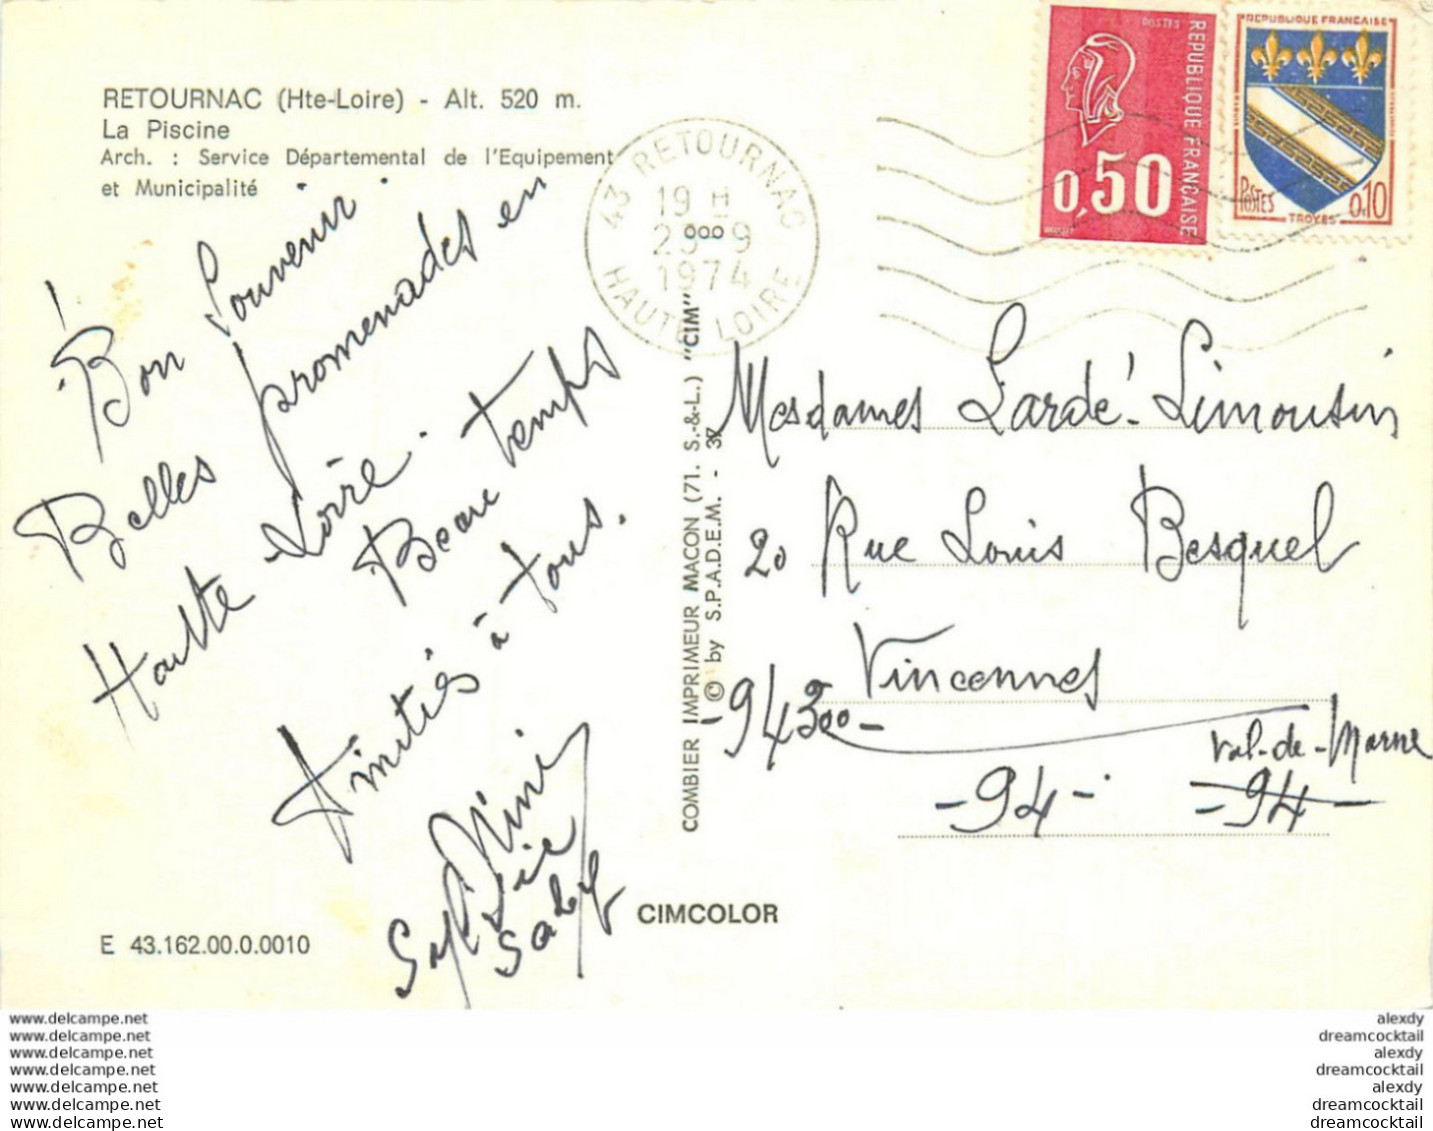 RETOURNAC (Hte-Loire) - Alt. 520 m.
La Piscine
Arch. : Service Départemental de l'Equipement
et Municipalité
Bon Souvenir
Belles promenades en
Haute Loire.
Beau temps
Amitiés à tous.
E 43.162.00.0.0010
COMBIER IMPRIMEUR MACON (71. S.-&-L.) "CIM"
© by S.P.A.D.E.M. - 37
CIMCOLOR
43 RETOURNAC
19 H
1974
HAUTE LOIRE
POSTES
REPUBLIQUE FRANCAISE
0,50
REPUBLIQUE FRANCAISE
POSTES
TROYES
0,10
Mesdames Lardé-Limousin
20 Rue Louis Besquel
Vincennes
-94300-
Val-de-Marne
-94-
-94-
www.delcampe.net
www.delcampe.net
www.delcampe.net
www.delcampe.net
www.delcampe.net
www.delcampe.net
www.delcampe.net
alexdy
dreamcocktail
alexdy
dreamcocktail
alexdy
dreamcocktail
dreamcocktail